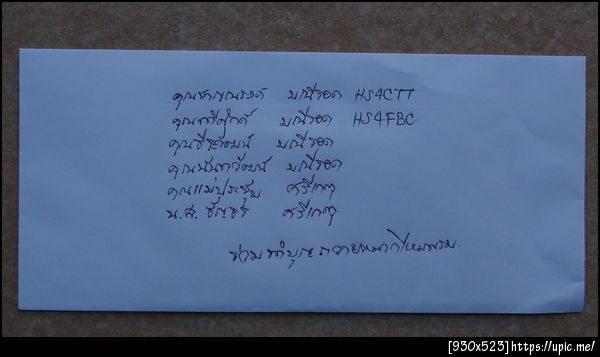 คุณชาญณรงค์ มณีรอด HS4CTT
คุณทวีศักดิ์ มณีรอด HS4FBC
คุณธีระวัฒน์ มณีรอด
คุณนันทวัฒน์ มณีรอด
คุณแม่ประชุม ศรีเกตุ
น.ส. ธัญชร ศรีเกตุ
ร่วมทำบุญถวาย
[930x523]https://upic.me/